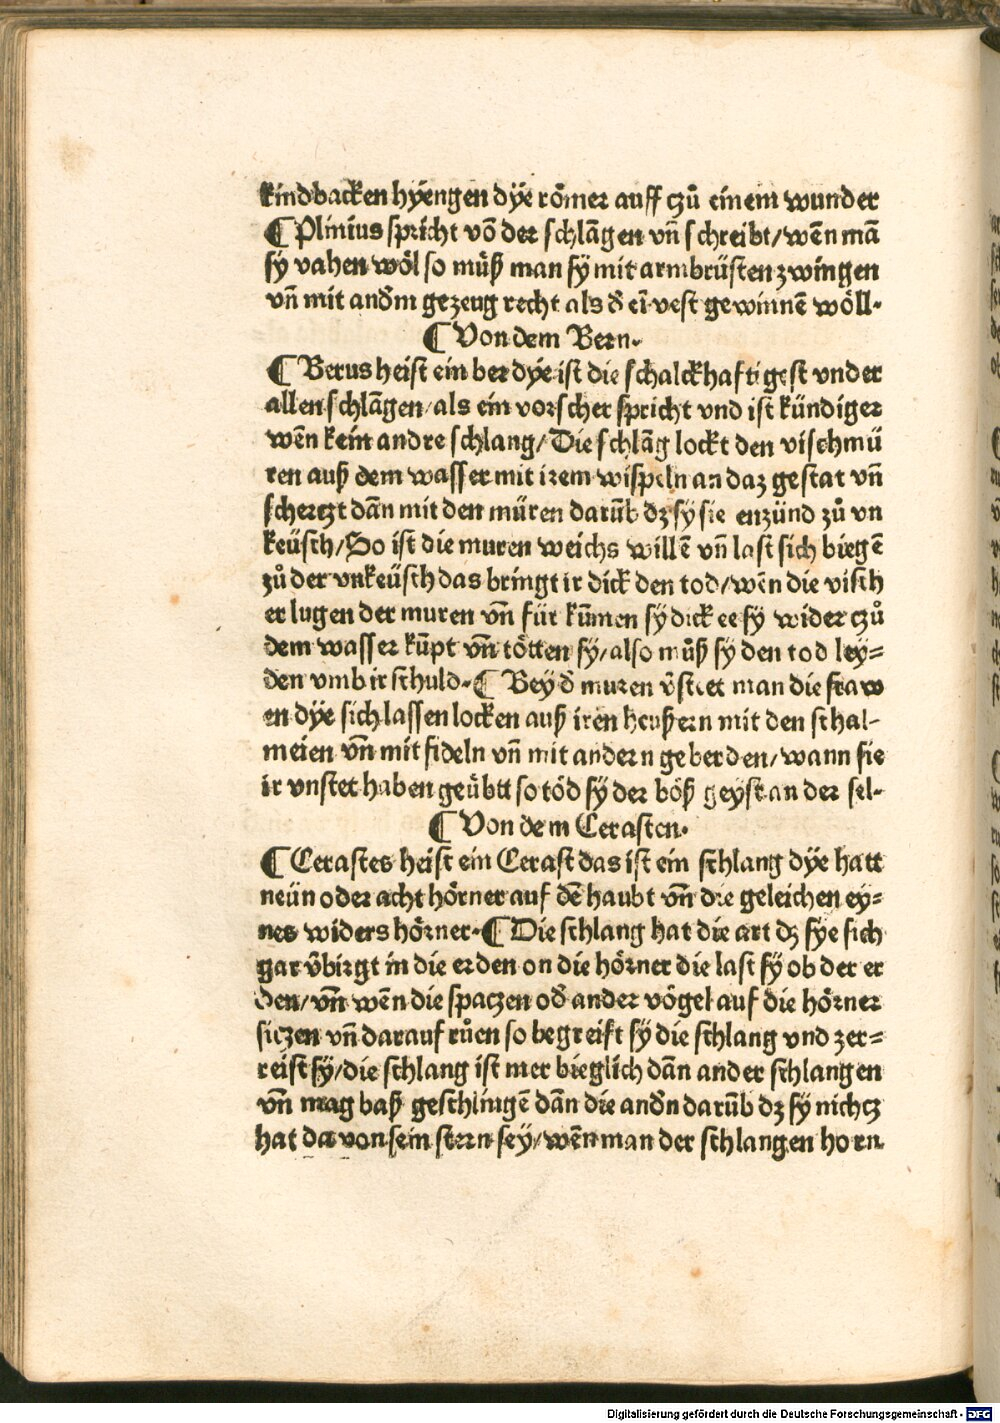 kindbacken hyẽngen dÿe rȫmer auff czů einem wunder
¶ Plinius spricht võ der schlãgen vñ schreibt/wẽn mã
sy vahen wöl so můß man sy mit armbrüsten zwingen
vñ mit andm̃ gezeug recht als d̃ ein vest gewinnẽ wöll.
¶ Von dem Bern.
¶ Berus heist ein ber dÿe ist die schalckhaftigest vnder
allen schlãgen/als ein vorscher spricht vnd ist kündiger
wẽn kein andre schlang/Die schlãg lockt den vischmü
ren auß dem wasser mit irem wispeln an daz gestat vñ
schertzt dãn mit den müren darũb dz sy sie enzünd zů vn
keüsch/So ist die muren weichs willẽ vñ last sich biegẽ
zů der vnkeüsch das bringt ir dick den tod/wẽn die visch
er lugen der muren vñ für kũmen sÿ dick ee sÿ wider czů
dem wasser kũpt vñ tötten sy/also můß sy den tod ley=
den vmb ir schuld.¶ Beÿ d̃ muren v̈steet man die fraw
en dÿe sich lassen locken auß iren heußern mit den schal-
meien vñ mit fideln vñ mit andern geberden/wann sie
ir vnstet haben geübtt so töd sÿ der böß geyst an der sel-
¶ Von dem Cerasten.
¶ Cerastes heist ein Cerast das ist ein schlang dÿe hatt
neün oder acht hörner auf dẽ haubt vñ die geleichen ey=
nes widers hörner.¶ Die schlang hat die art dz sye sich
gar v̈birgt in die erden on die hörner die last sÿ ob der er
den/vñ wẽn die spaczen od̃ ander vögel auf die hörner
siczen vñ darauf růen so begreift sÿ die schlang vnd zer=
reist sÿ/die schlang ist mer bieglich dãn ander schlangen
vñ mag baß geschlingẽ dãn die andñ darũb dz sÿ nichcz
hat da von sein stern seÿ/wẽn man der schlangen horn
Digitalisierung gefördert durch die Deutsche Forschungsgemeinschaft - DFG